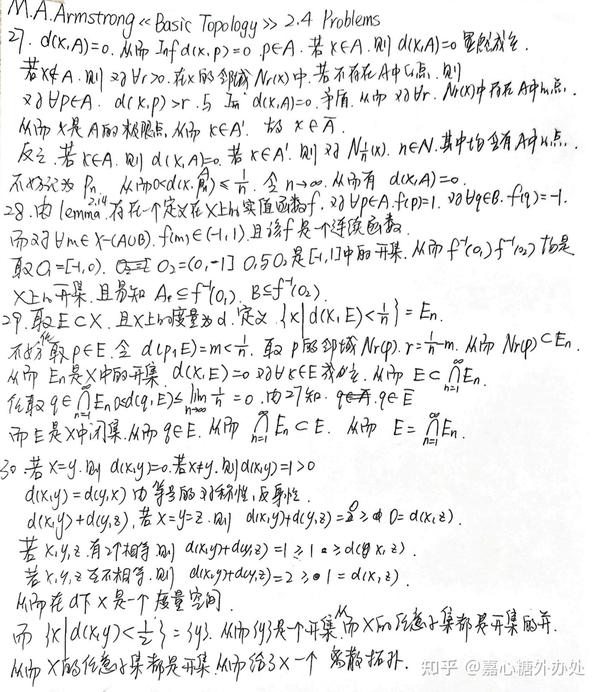 M.A.Armstrong《Basic Topology》 2.4 Problems
27. d(x,A)=0. 从而 Inf d(x,p)=0 p∈A. 若x∈A. 则 d(x,A)=0 显然成立.
若x∉A. 则 对∀r>0. 在x的邻域 Nr(x)中. 若不存在A中的点. 则
对∀p∈A. d(x,p)>r. 与 Inf d(x,A)=0. 矛盾. 从而 对∀r. Nr(x)中存在A中的点.
从而 x是A的极限点. 从而 x∈A'. 故 x∈Ā.
反之. 若x∈A. 则 d(x,A)=0. 若 x∈A'. 则 对 N1/n(x). n∈N. 其中均含有A中的点.
不妨记为 Pn. 从而0<d(x,Pn)≤1/n. 令 n→∞. 从而有 d(x,A)=0.
28. 由 lemma 2.14 存在一个定义在X上的实值函数f. 对∀p∈A. f(p)=1. 对∀q∈B. f(q)=-1.
而对∀m∈X-(A∪B). f(m)∈(-1,1). 且该f是一个连续函数.
取O1=[-1,0). O2=(0,-1] O1与O2是[-1,1]中的开集. 从而 f⁻¹(O1) f⁻¹(O2) 均是
X上的开集. 且易知 A⊆f⁻¹(O1). B⊆f⁻¹(O2).
29. 取E⊂X. 且X上的度量为d. 定义 {x|d(x,E)<1/n}=En.
不妨任取 p∈E. 令 d(p,E)=m<1/n. 取 p的邻域 Nr(p). r=1/n-m. 从而 Nr(p)⊂En.
从而 En是X中的开集. d(x,E)=0 对∀x∈E成立. 从而 E⊂∩(n=1,∞)En.
任取 q∈∩(n=1,∞)En 0≤d(q,E)≤lim(n→∞) 1/n=0. 由27知. q∈E
而E是X中闭集. 从而q∈E. 从而 ∩(n=1,∞)En⊂E. 从而 E=∩(n=1,∞)En.
30. 若 x=y. 则 d(x,y)=0. 若x≠y. 则d(x,y)=1>0
d(x,y)=d(y,x) 由等号的对称性,反身性.
d(x,y)+d(y,z), 若 x=y=z. 则 d(x,y)+d(y,z)=0≥0=d(x,z).
若 x,y,z 有2个相等. 则 d(x,y)+d(y,z)=1≥1≥d(x,z).
若 x,y,z 互不相等. 则 d(x,y)+d(y,z)=2≥1=d(x,z).
从而在d下 X是一个度量空间.
而 {x|d(x,y)<1/2}={y}. 从而{y}是一个开集. 从而X的任意子集都是开集的并.
从而 X的任意子集都是开集. 从而给了X一个 离散拓扑.
知乎 @嘉心糖外办处